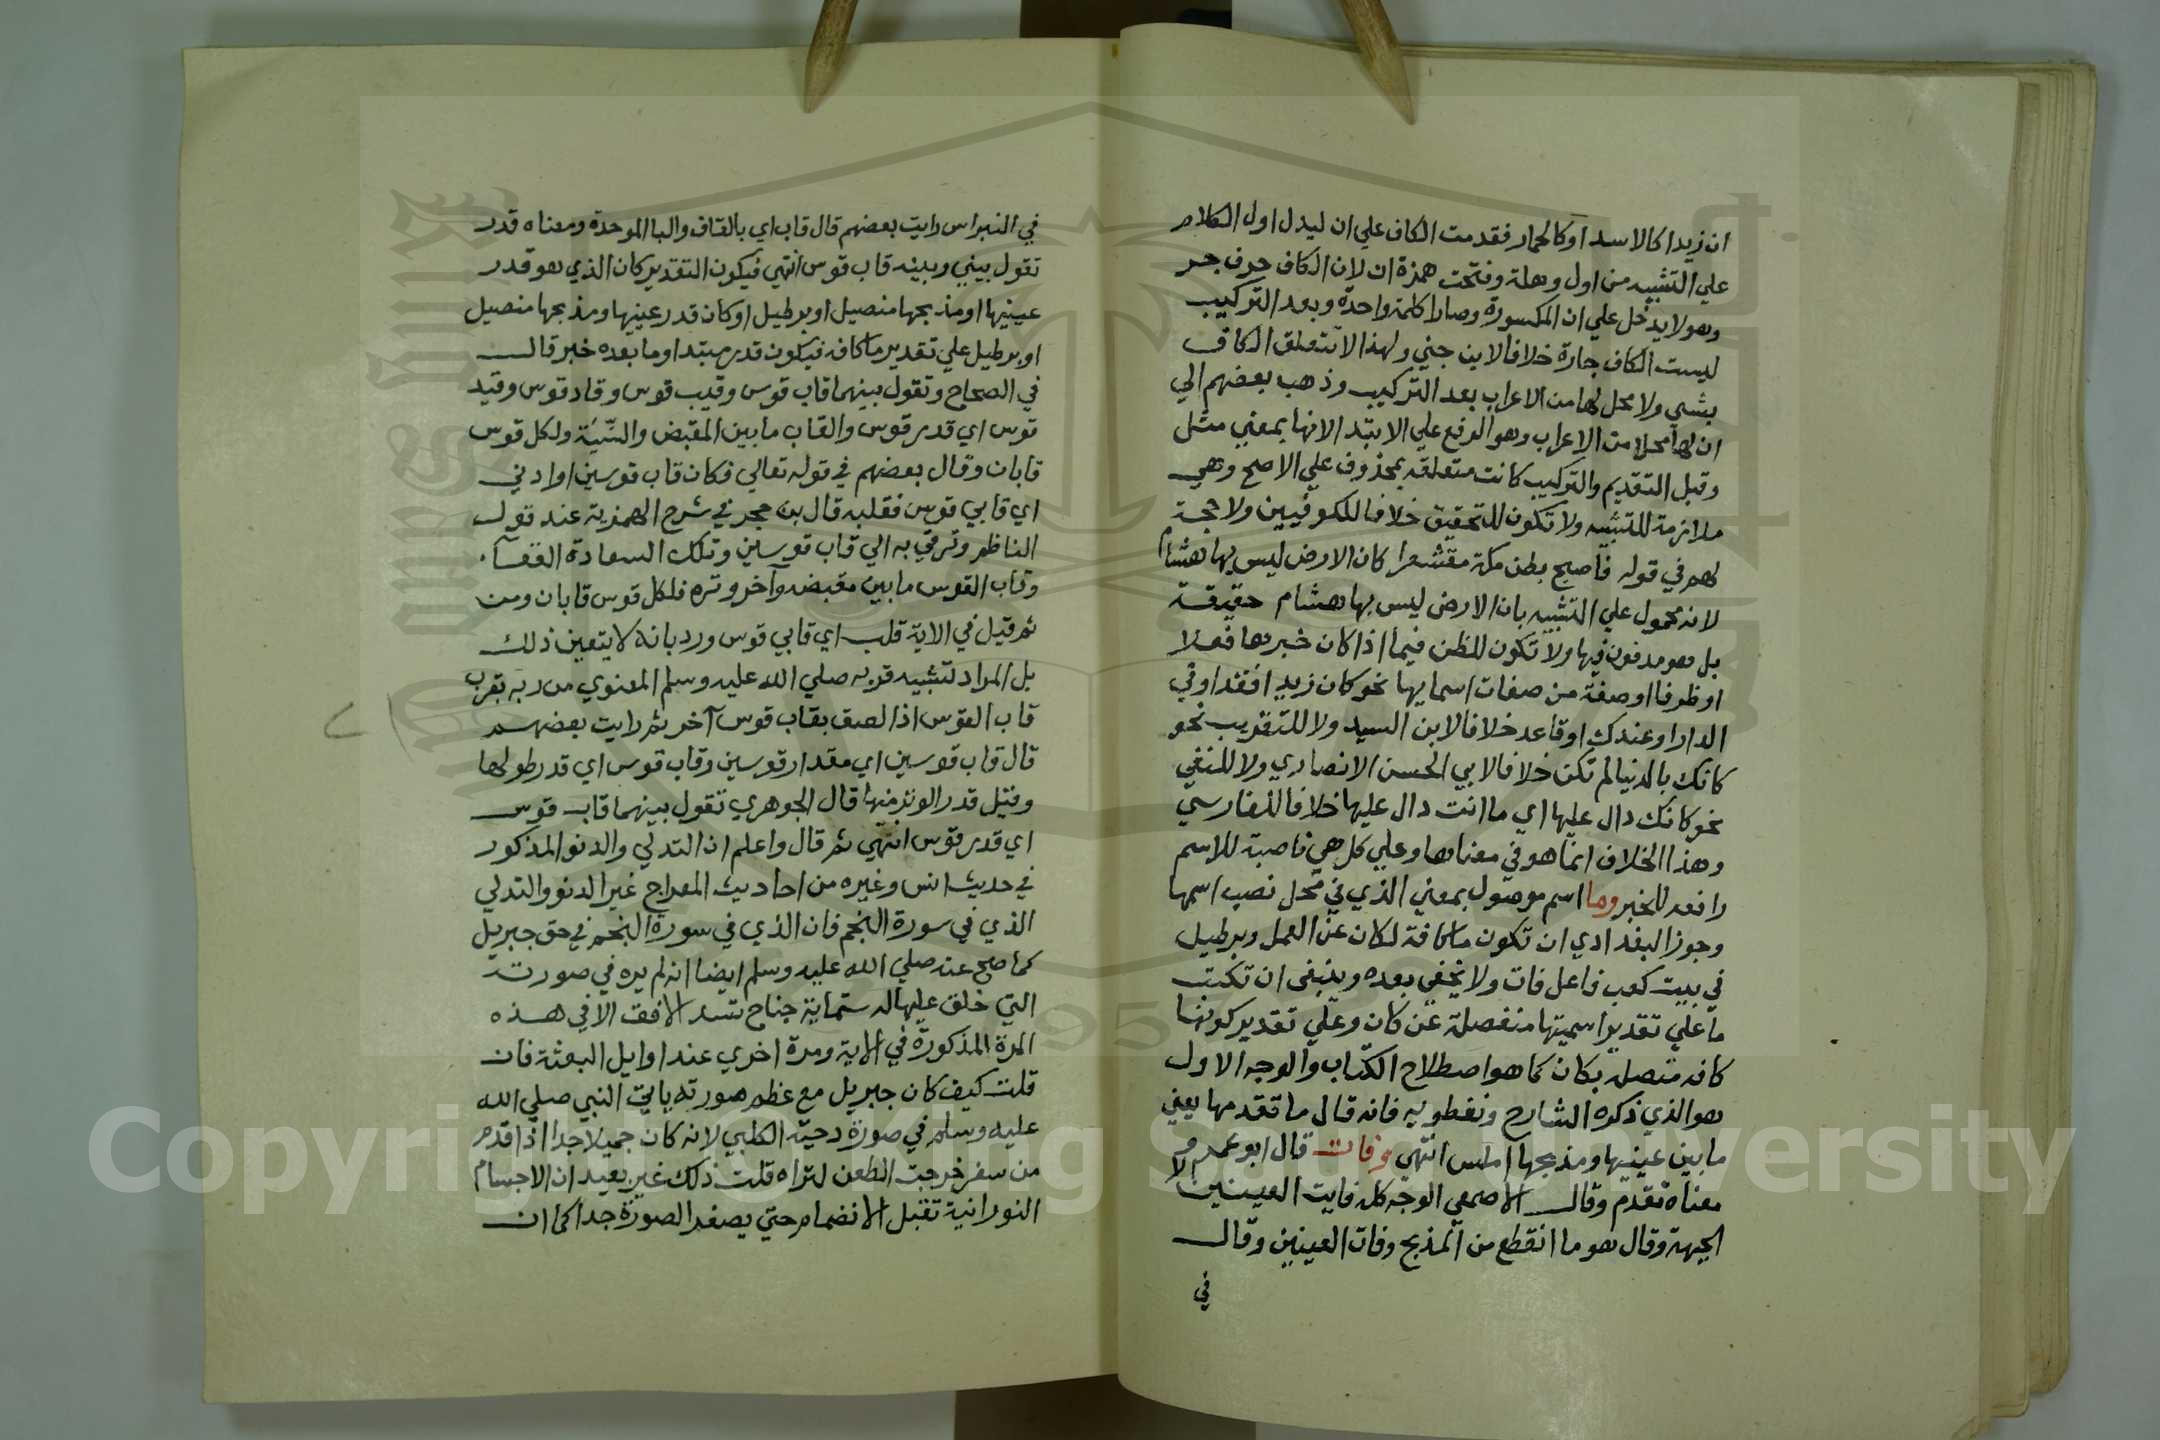 ان زيدا كالاسد او كالحمار فقدمت الكاف علي ان ليدل اول الكلام
علي التشبيه من اول وهلة وفتحت همزة ان لان الكاف حرف جر
وهو لا يدخل علي ان المكسورة وصارا كلمة واحدة وبعد التركيب
ليست الكاف جارة خلافا لابن جني ولهذا لا تتعلق الكاف
بشي ولا محل لها من الاعراب بعد التركيب وذهب بعضهم الي
ان لها محلا من الاعراب وهو الرفع علي الابتدا لانها بمعني مثل
وقبل التقديم والتركيب كانت متعلقه بمحذوف علي الاصح وهي
ملازمة للتشبيه ولا تكون للتحقيق خلافا للكوفيين ولا حجة
لهم في قوله فاصبح بطن مكة مقشعرا كان الارض ليس بها هشام
لانه محمول علي التشبيه بان الارض ليس بها هشام حقيقة
بل هو مدفون فيها ولا تكون للظن فيما اذا كان خبرها فعلا
او ظرفا او صفة من صفات اسمايها نحو كان زيد افقد او في
الدار او عندك او قاعد خلافا لابن السيد ولا للتقريب نحو
كانك بالدنيا لم تكن خلافا لابي الحسن الانصاري ولا للنفي
نحو كانك دال عليها اي ما انت دال عليها خلافا للفارسي
وهذا الخلاف انما هو في معناها وعلي كل هي ناصبة للاسم
رافعه للخبر وما اسم موصول بمعني الذي في محل نصب اسمها
وجوز البغدادي ان تكون ما كافة لكان عن العمل وبرطيل
في بيت كعب فاعل فات ولا يخفي بعده وينبغي ان تكتب
ما علي تقدير اسميتها منفصلة عن كان وعلي تقدير كونها
كافه متصله بكان كما هو اصطلاح الكتاب والوجه الاول
هو الذي ذكره الشارح ونفطويه فانه قال ما تقدمها يعني
ما بين عينيها ومذبحها املس انتهي وفات قال ابو عمرو
معناه تقدم وقال الاصمعي الوجه كله فايت العينين الا
الجبهة وقال هو ما انقطع من المذبح وفات العينين وقال
في
في النبراس رايت بعضهم قال قاب اي بالقاف والبا الموحدة ومعناه قدر
تقول بيني وبينه قاب قوس انتهي فيكون التقدير كان الذي هو قدر
عينيها او مذبحها منصيل او برطيل او كان قدر عينيها ومذبحها منصيل
او برطيل علي تقدير ما كافه فيكون قدر مبتدا وما بعده خبر قال
في الصحاح وتقول بينهما قاب قوس وقيب قوس وقاد قوس وقيد
قوس اي قدر قوس والقاب ما بين المقبض والسِّيَة ولكل قوس
قابان وقال بعضهم في قوله تعالي فكان قاب قوسين او ادني
اي قابي قوس فقلبه قال بن حجر في شرح الهمزية عند قول
الناظم وترقي به الي قاب قوسين وتلك السعادة القعسآ.
وقاب القوس ما بين مقبضه وآخر وتره فلكل قوس قابان ومن
ثم قيل في الاية قلب اي قابي قوس ورد بانه لا يتعين ذلك
بل المراد تشبيه قربه صلي الله عليه وسلم المعنوي من ربه بقرب
قاب القوس اذا لصق بقاب قوس آخر ثم رايت بعضهم
قال قاب قوسين اي مقدار قوسين وقاب قوس اي قدر طولها
وقيل قدر الوتر منها قال الجوهري تقول بينهما قاب قوس
اي قدر قوس انتهي ثم قال واعلم ان التدلي والدنو المذكور
في حديث انس وغيره من احاديث المعراج غير الدنو والتدلي
الذي في سورة النجم فان الذي في سورة النجم في حق جبريل
كما صح عنه صلي الله عليه وسلم ايضا انه لم يره في صورته
التي خلق عليها له ستماية جناح تسد الافق الا في هذه
المرة المذكورة في الاية ومرة اخري عند اوايل البعثة فان
قلت كيف كان جبريل مع عظم صورته ياتي النبي صلي الله
عليه وسلم في صورة دحية الكلبي لانه كان جميلا جدا اذا قدم
من سفر خرجت الظعن لتراه قلت ذلك غير بعيد ان الاجسام
النورانية تقبل الانضمام حتي يصغر الصورة جدا كما ان
Copyright © King Saud University
1957